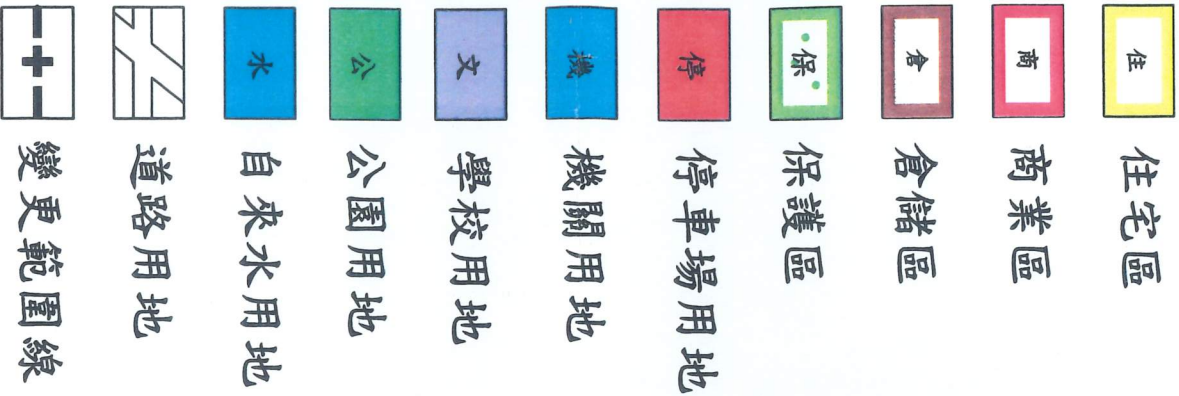 住 住宅區
商 商業區
倉 倉儲區
保 保護區
停 停車場用地
機 機關用地
文 學校用地
公 公園用地
水 自來水用地
道路用地
變更範圍線